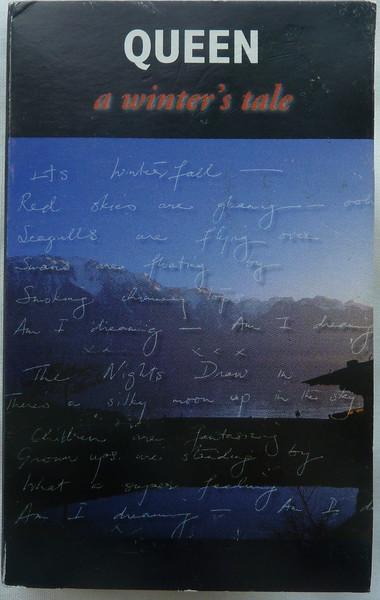 QUEEN
a winter's tale
Its Winter fall —
Red skies are gleaming — ooh
Seagulls are flying over
Swans are floating by
Smoking chimney tops
Am I dreaming — Am I dreaming
x x x x x
The Nights Draw in
There's a silky moon up in the sky
Children are fantasising
Grown ups are standing by
What a super feeling
Am I dreaming — Am I d